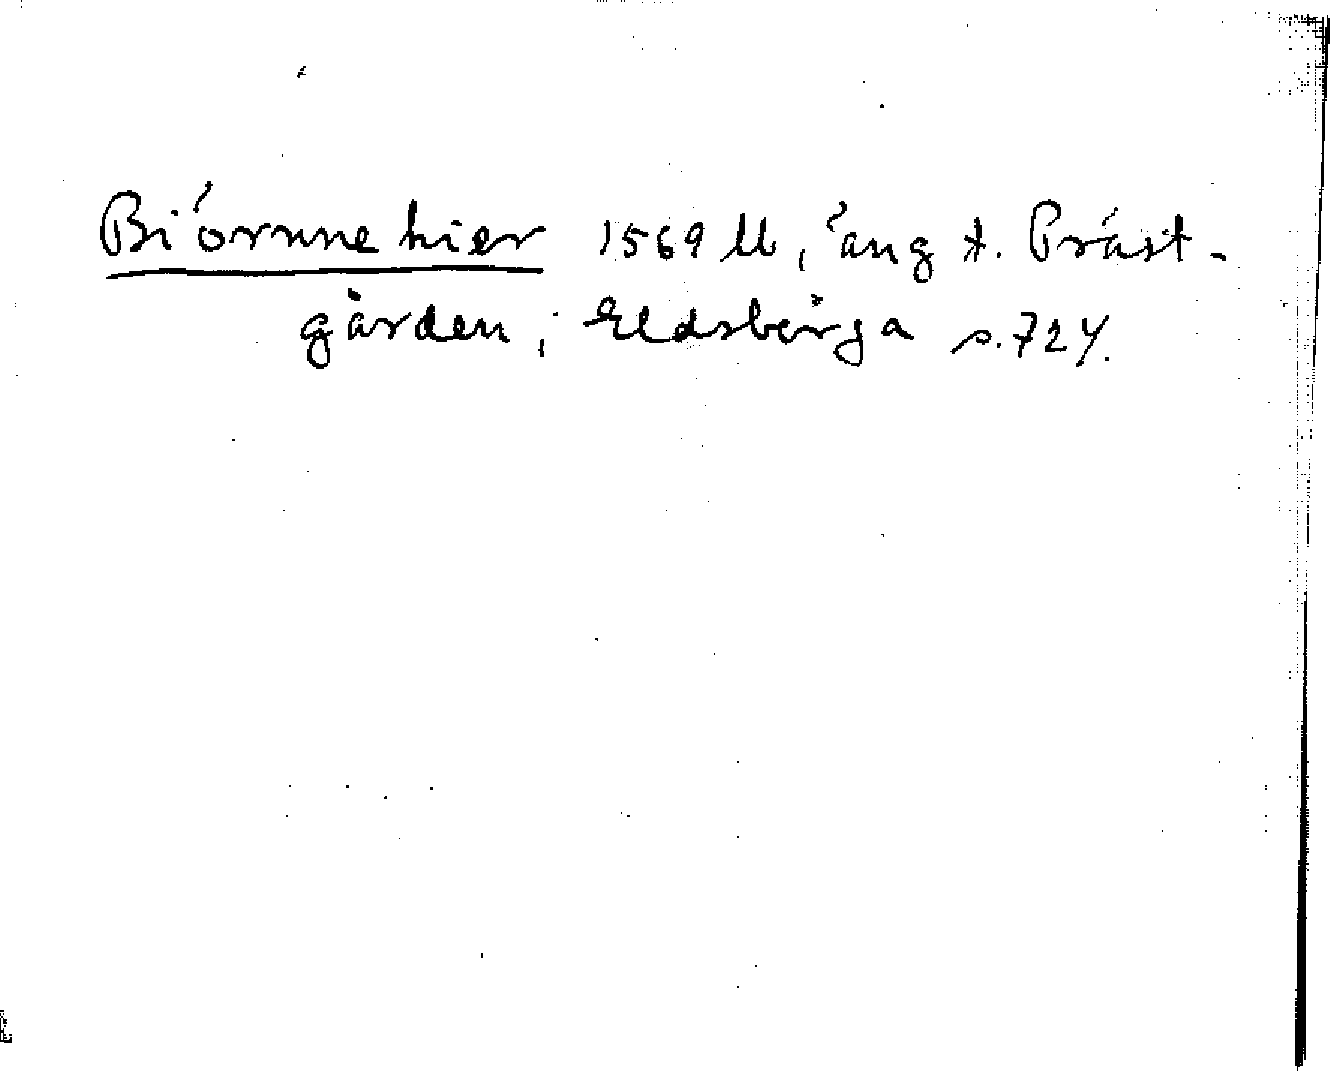 Biörnne kier 1569 ll, äng t. Präst-
gården, Eldsbärga s. 724.